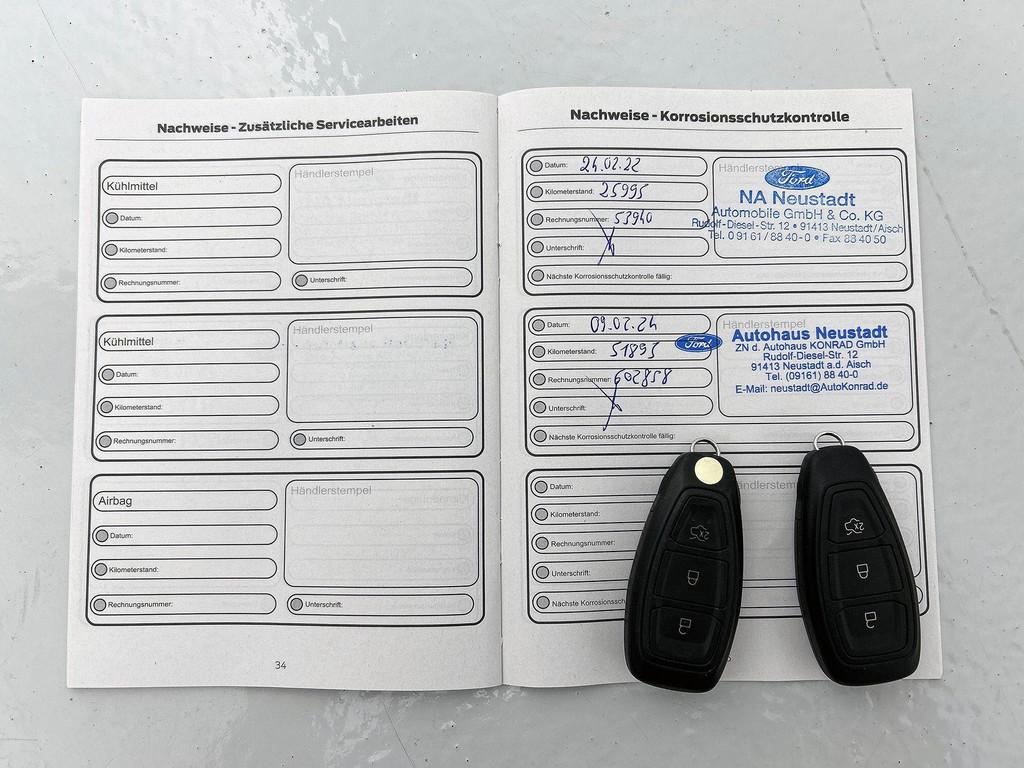 Nachweise - Zusätzliche Servicearbeiten
Kühlmittel
Händlerstempel
Datum:
Kilometerstand:
Rechnungsnummer:
Unterschrift:
Kühlmittel
Händlerstempel
Datum:
Kilometerstand:
Rechnungsnummer:
Unterschrift:
Airbag
Händlerstempel
Datum:
Kilometerstand:
Rechnungsnummer:
Unterschrift:
34
Nachweise - Korrosionsschutzkontrolle
Datum: 24.02.22
Kilometerstand: 25995
Rechnungsnummer: 53940
Unterschrift:
Nächste Korrosionsschutzkontrolle fällig:
Händlerstempel
Ford
NA Neustadt
Automobile GmbH & Co. KG
Rudolf-Diesel-Str. 12 • 91413 Neustadt/Aisch
Tel. 0 91 61 / 88 40-0 • Fax 88 40 50
Datum: 09.02.24
Kilometerstand: 51895
Rechnungsnummer: 602858
Unterschrift:
Nächste Korrosionsschutzkontrolle fällig:
Händlerstempel
Ford
Autohaus Neustadt
ZN d. Autohaus KONRAD GmbH
Rudolf-Diesel-Str. 12
91413 Neustadt a.d. Aisch
Tel. (09161) 88 40-0
E-Mail: neustadt@AutoKonrad.de
Datum:
Kilometerstand:
Rechnungsnummer:
Unterschrift:
Nächste Korrosionssch
ändlerstem
2x
2x